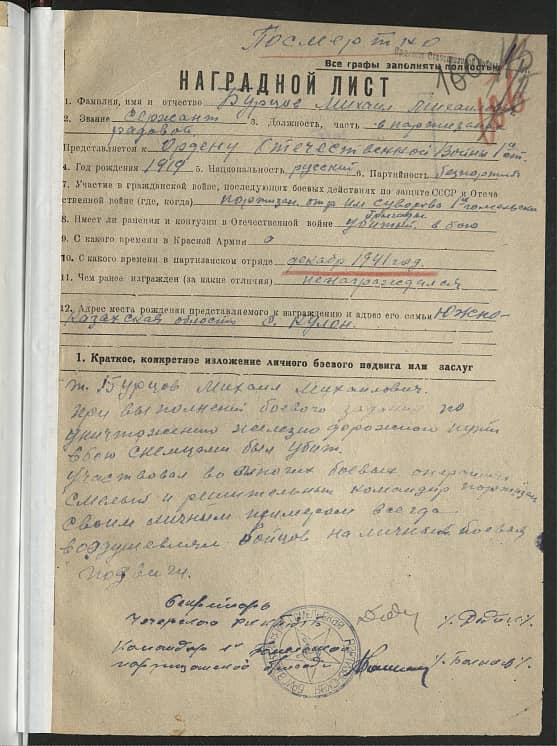 Посмертно
Все графы заполнять полностью
160
НАГРАДНОЙ ЛИСТ
1. Фамилия, имя и отчество Бурцов Михаил Михайлович
2. Звание Сержант 3. Должность, часть в партизанах
рядовой
Представляется к Ордену Отечественной Войны 1й ст.
4. Год рождения 1919 5. Национальность русский 6. Партийность беспартийн
7. Участие в гражданской войне, последующих боевых действиях по защите СССР и Отече-
ственной войне (где, когда) партизан. отр. им Суворова 1й Гомельской
бригады
8. Имеет ли ранения и контузии в Отечественной войне убитый в бою
9. С какого времени в Красной Армии
10. С какого времени в партизанском отряде декабр 1941 год.
11. Чем ранее награжден (за какие отличия) ненаграждался
12. Адрес места рождения представляемого к награждению и адрес его семьи Южно-
Казахская область с. Кулон.
1. Краткое, конкретное изложение личного боевого подвига или заслуг
т. Бурцов Михаил Михайлович.
При выполнений боевого задания по
уничтожению железно дорожного пути
в бою с немцами был убит.
Участвовал во многих боевых операциях
смелый и решительный командир партизан
своим личным примером всегда
воодушевлял бойцов на личные боевые
подвиги.
Секретарь
Чечерского
Командир 1й Гомельской
партизанской бригады